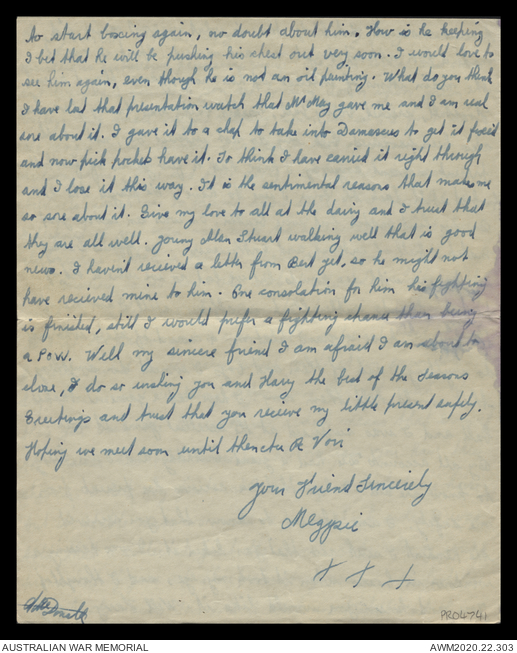 to start boxing again, no doubt about him. How is he keeping
I bet that he will be pushing his chest out very soon. I would love to
see him again, even though he is not an oil painting. What do you think
I have lost that presentation watch that Mr May gave me and I am real
sore about it. I gave it to a chap to take into Damascus to get it fixed
and now pick pocket have it. To think I have carried it right through
and I lose it this way. It is the sentimental reasons that makes me
so sore about it. Give my love to all at the dairy and I trust that
they are all well. Young Alan Stuart walking well that is good
news. I havent recieved a letter from Bert yet, so he might not
have recieved mine to him. One consolation for him his fighting
is finished, still I would prefer a fighting chance than being
a P.O.W. Well my sincere friend I am afraid I am about to
close, I do so wishing you and Harry the best of the Seasons
Greetings and trust that you receive my little present safely.
Hoping we meet soon until then
Your Friend Sincerely
Megpie
x x x
PR04741
AUSTRALIAN WAR MEMORIAL
AWM2020.22.303